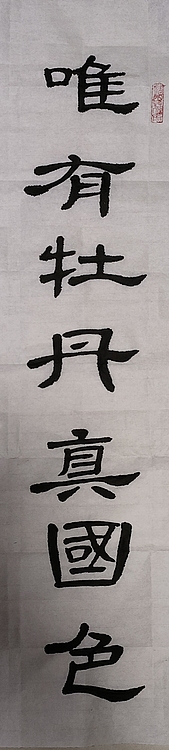 唯有牡丹真國色